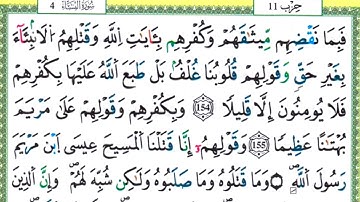 حزب 11 سُورَةُ النِّسَاء 4
فَبِمَا نَقْضِهِم مِّيثَٰقَهُمْ وَكُفْرِهِم بِـَٔايَٰتِ اللَّهِ وَقَتْلِهِمُ الَانۢبِـَٔآءَ
بِغَيْرِ حَقٍّ وَقَوْلِهِمْ قُلُوبُنَا غُلْفٌۢ بَلْ طَبَعَ اللَّهُ عَلَيْهَا بِكُفْرِهِمْ
فَلَا يُومِنُونَ إِلَّا قَلِيلًا 154 وَبِكُفْرِهِمْ وَقَوْلِهِمْ عَلَىٰ مَرْيَمَ
بُهْتَٰنًا عَظِيمًا 155 وَقَوْلِهِمُۥٓ إِنَّا قَتَلْنَا الْمَسِيحَ عِيسَى ابْنَ مَرْيَمَ
رَسُولَ اللَّهِ وَمَا قَتَلُوهُ وَمَا صَلَبُوهُ وَلَٰكِن شُبِّهَ لَهُمْ وَإِنَّ الَّذِينَ